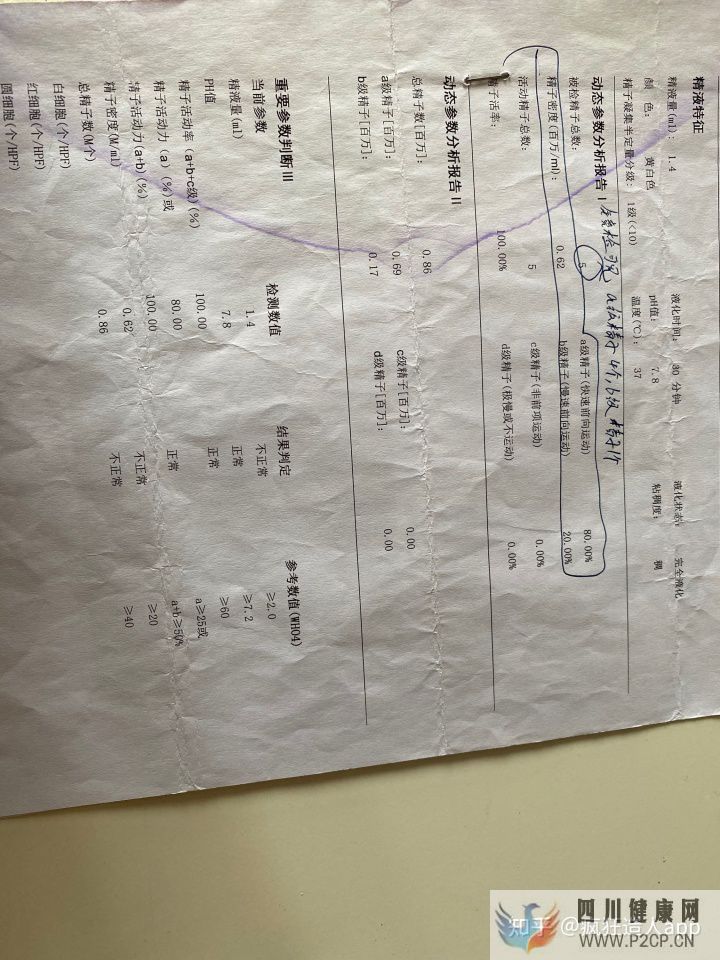 精液特征
精液量(ml): 1.4 液化时间: 30 分钟 液化状态: 完全液化
颜 色: 黄白色 pH值: 7.8 粘稠度: 稠
精子凝集半定量分级: 1级(<10) 温度(℃): 37
动态参数分析报告 I
a级精子4个, b级精子1个
被检精子总数: 5 a级精子(快速前向运动) 80.00%
精子密度(百万/ml): 0.62 b级精子(慢速前向运动) 20.00%
活动精子总数: 5 c级精子(非前项运动) 0.00%
子活率: 100.00% d级精子(极慢或不运动) 0.00%
动态参数分析报告 II
总精子数[百万]: 0.86
a级精子[百万]: 0.69 c级精子[百万]: 0.00
b级精子[百万]: 0.17 d级精子[百万]: 0.00
重要参数判断 III
当前参数 检测数值 结果判定 参考数值(WHO4)
精液量(ml) 1.4 不正常 ≥2.0
PH值 7.8 正常 ≥7.2
精子活动率 (a+b+c级)(%) 100.00 正常 ≥60
精子活动力 (a) (%)或 80.00 正常 a≥25或
精子活动力(a+b)(%) 100.00 a+b≥50%
精子密度(M/ml) 0.62 不正常 ≥20
总精子数(M个) 0.86 不正常 ≥40
白细胞(个/HPF)
红细胞(个/HPF)
圆细胞(个/HPF)
知乎 @疯狂造人app
四川健康网
WWW.P2CP.CN